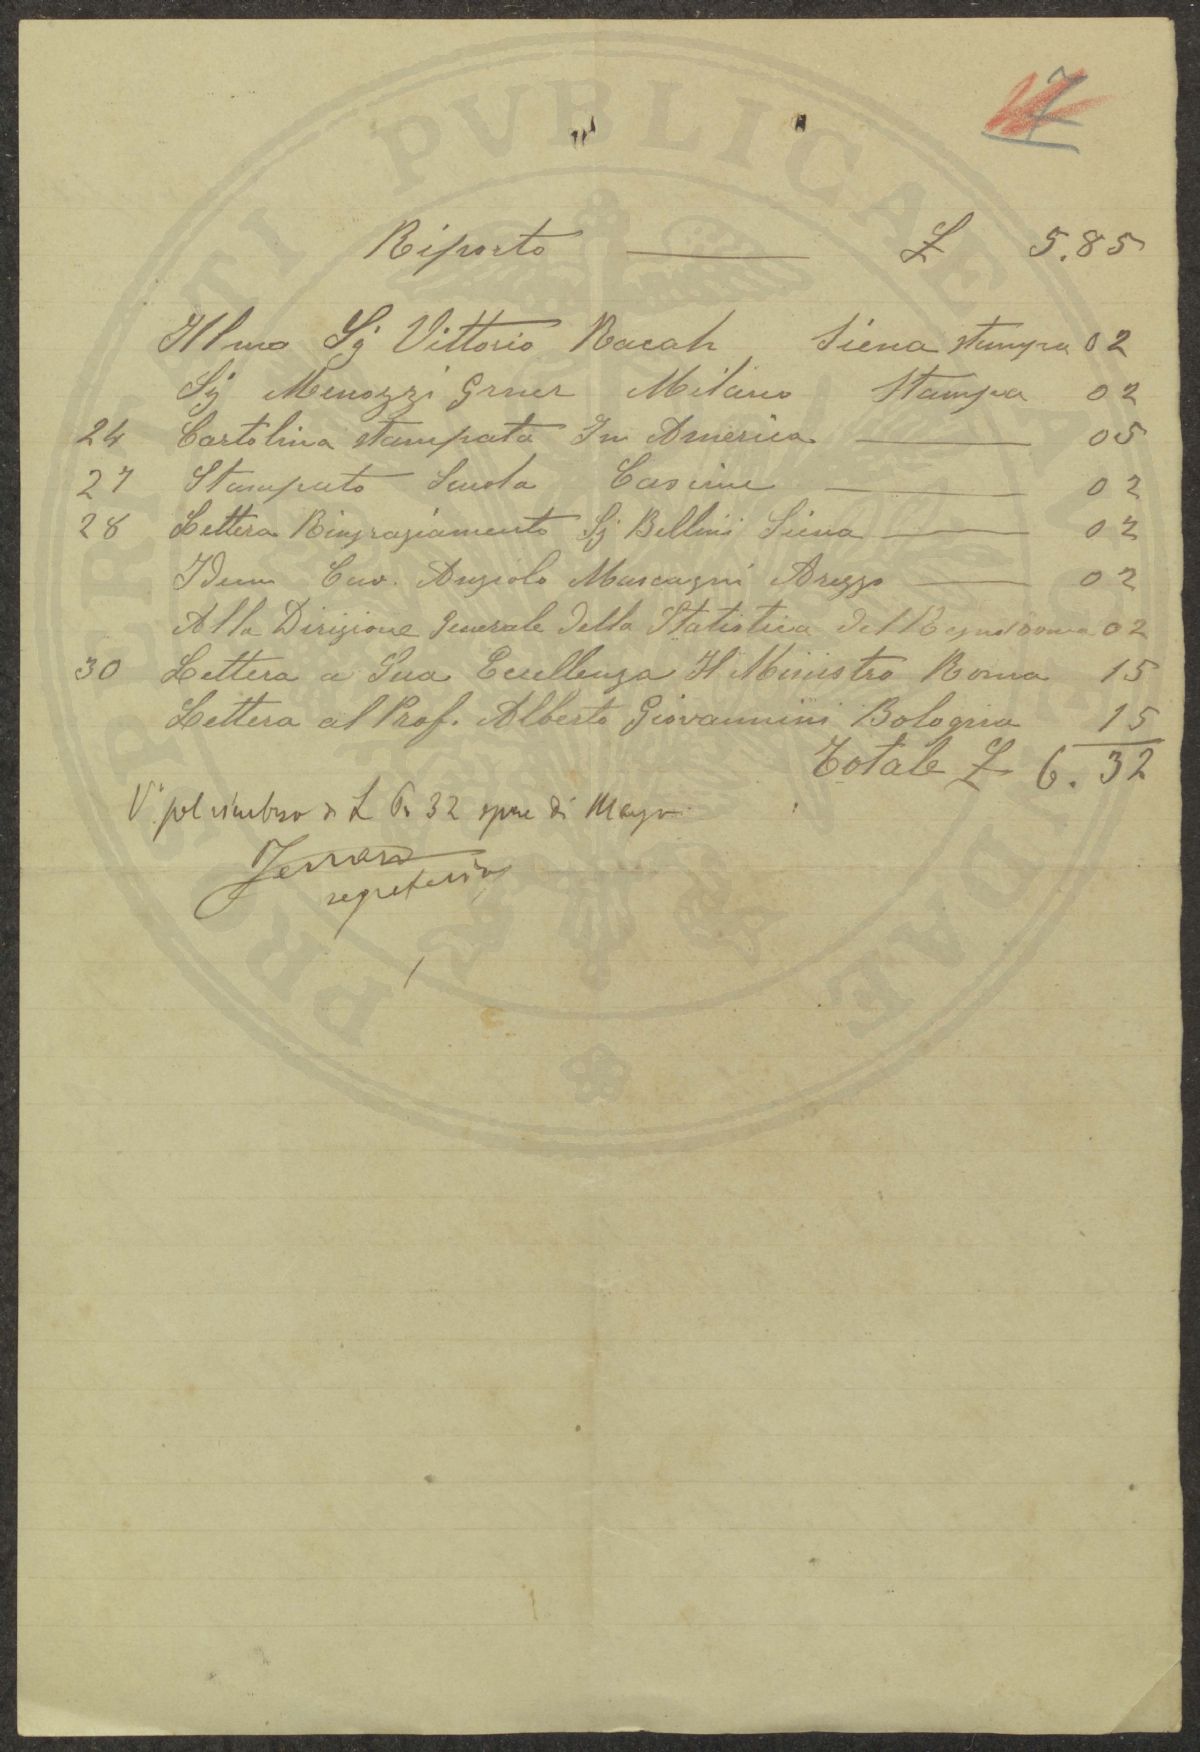 7
Riporto £ 5.85
Illmo Sg Vittorio Racah Siena stampa 02
Sg Menozzi Milano Stampa 02
24 Cartolina stampata In America 05
27 Stampato Scuola Cascine 02
28 Lettera Ringraziamento Sg Bellini Siena 02
Idem Cav. Angiolo Mascagni Arezzo 02
Alla Dirizione Generale Della Statistica Del Regno Roma 02
30 Lettera a Sua Eccellenza Il Ministro Roma 15
Lettera al Prof. Alberto Giovannini Bologna 15
Totale £ 6.32
V° pel rimborso di L 6 32 spese di Maggio
Ferrari
segretario
PROSPERITATI PVBLICAE AVGENDAE